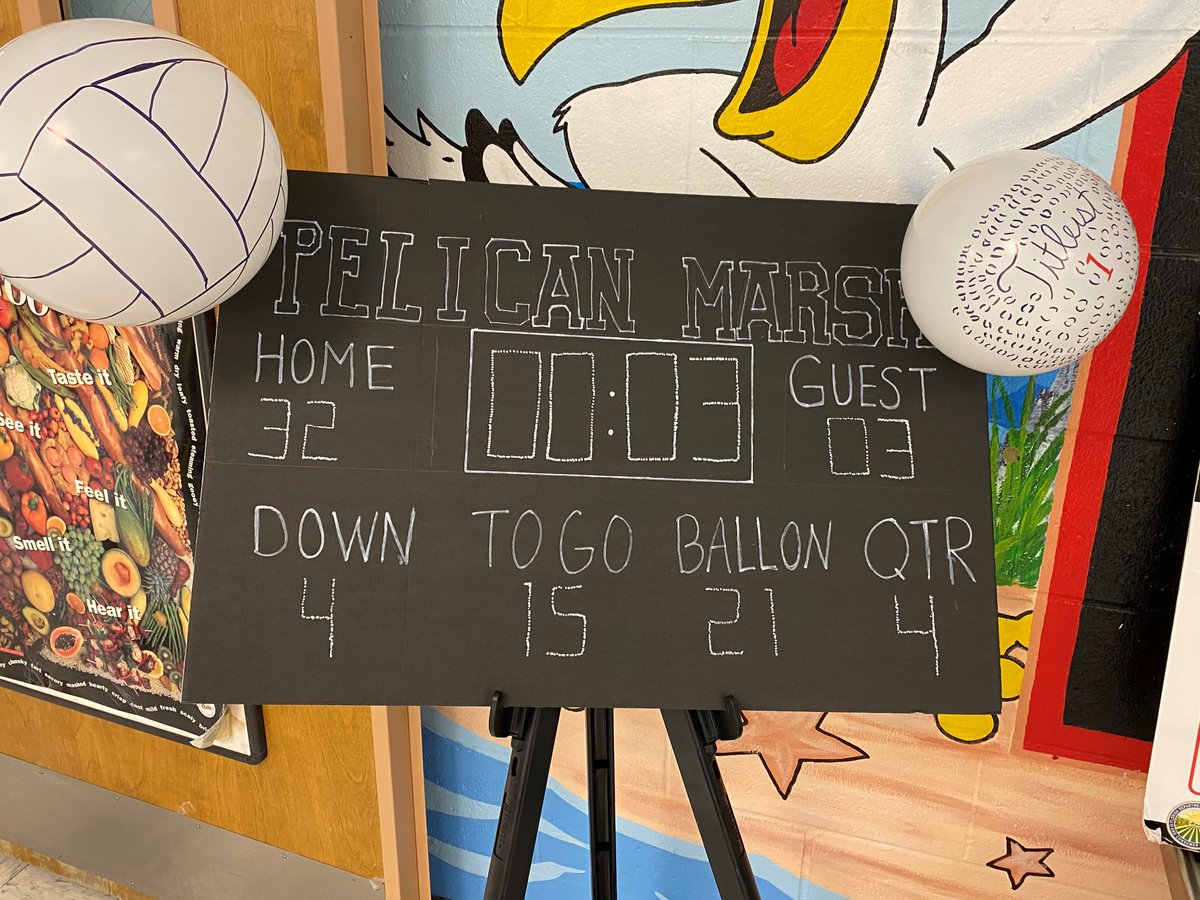 PELICAN MARSH
HOME
32
00:03
GUEST
03
DOWN
4
TO GO
15
BALLON
21
QTR
4
Titleist
1
Taste it
See it
Feel it
Smell it
Hear it